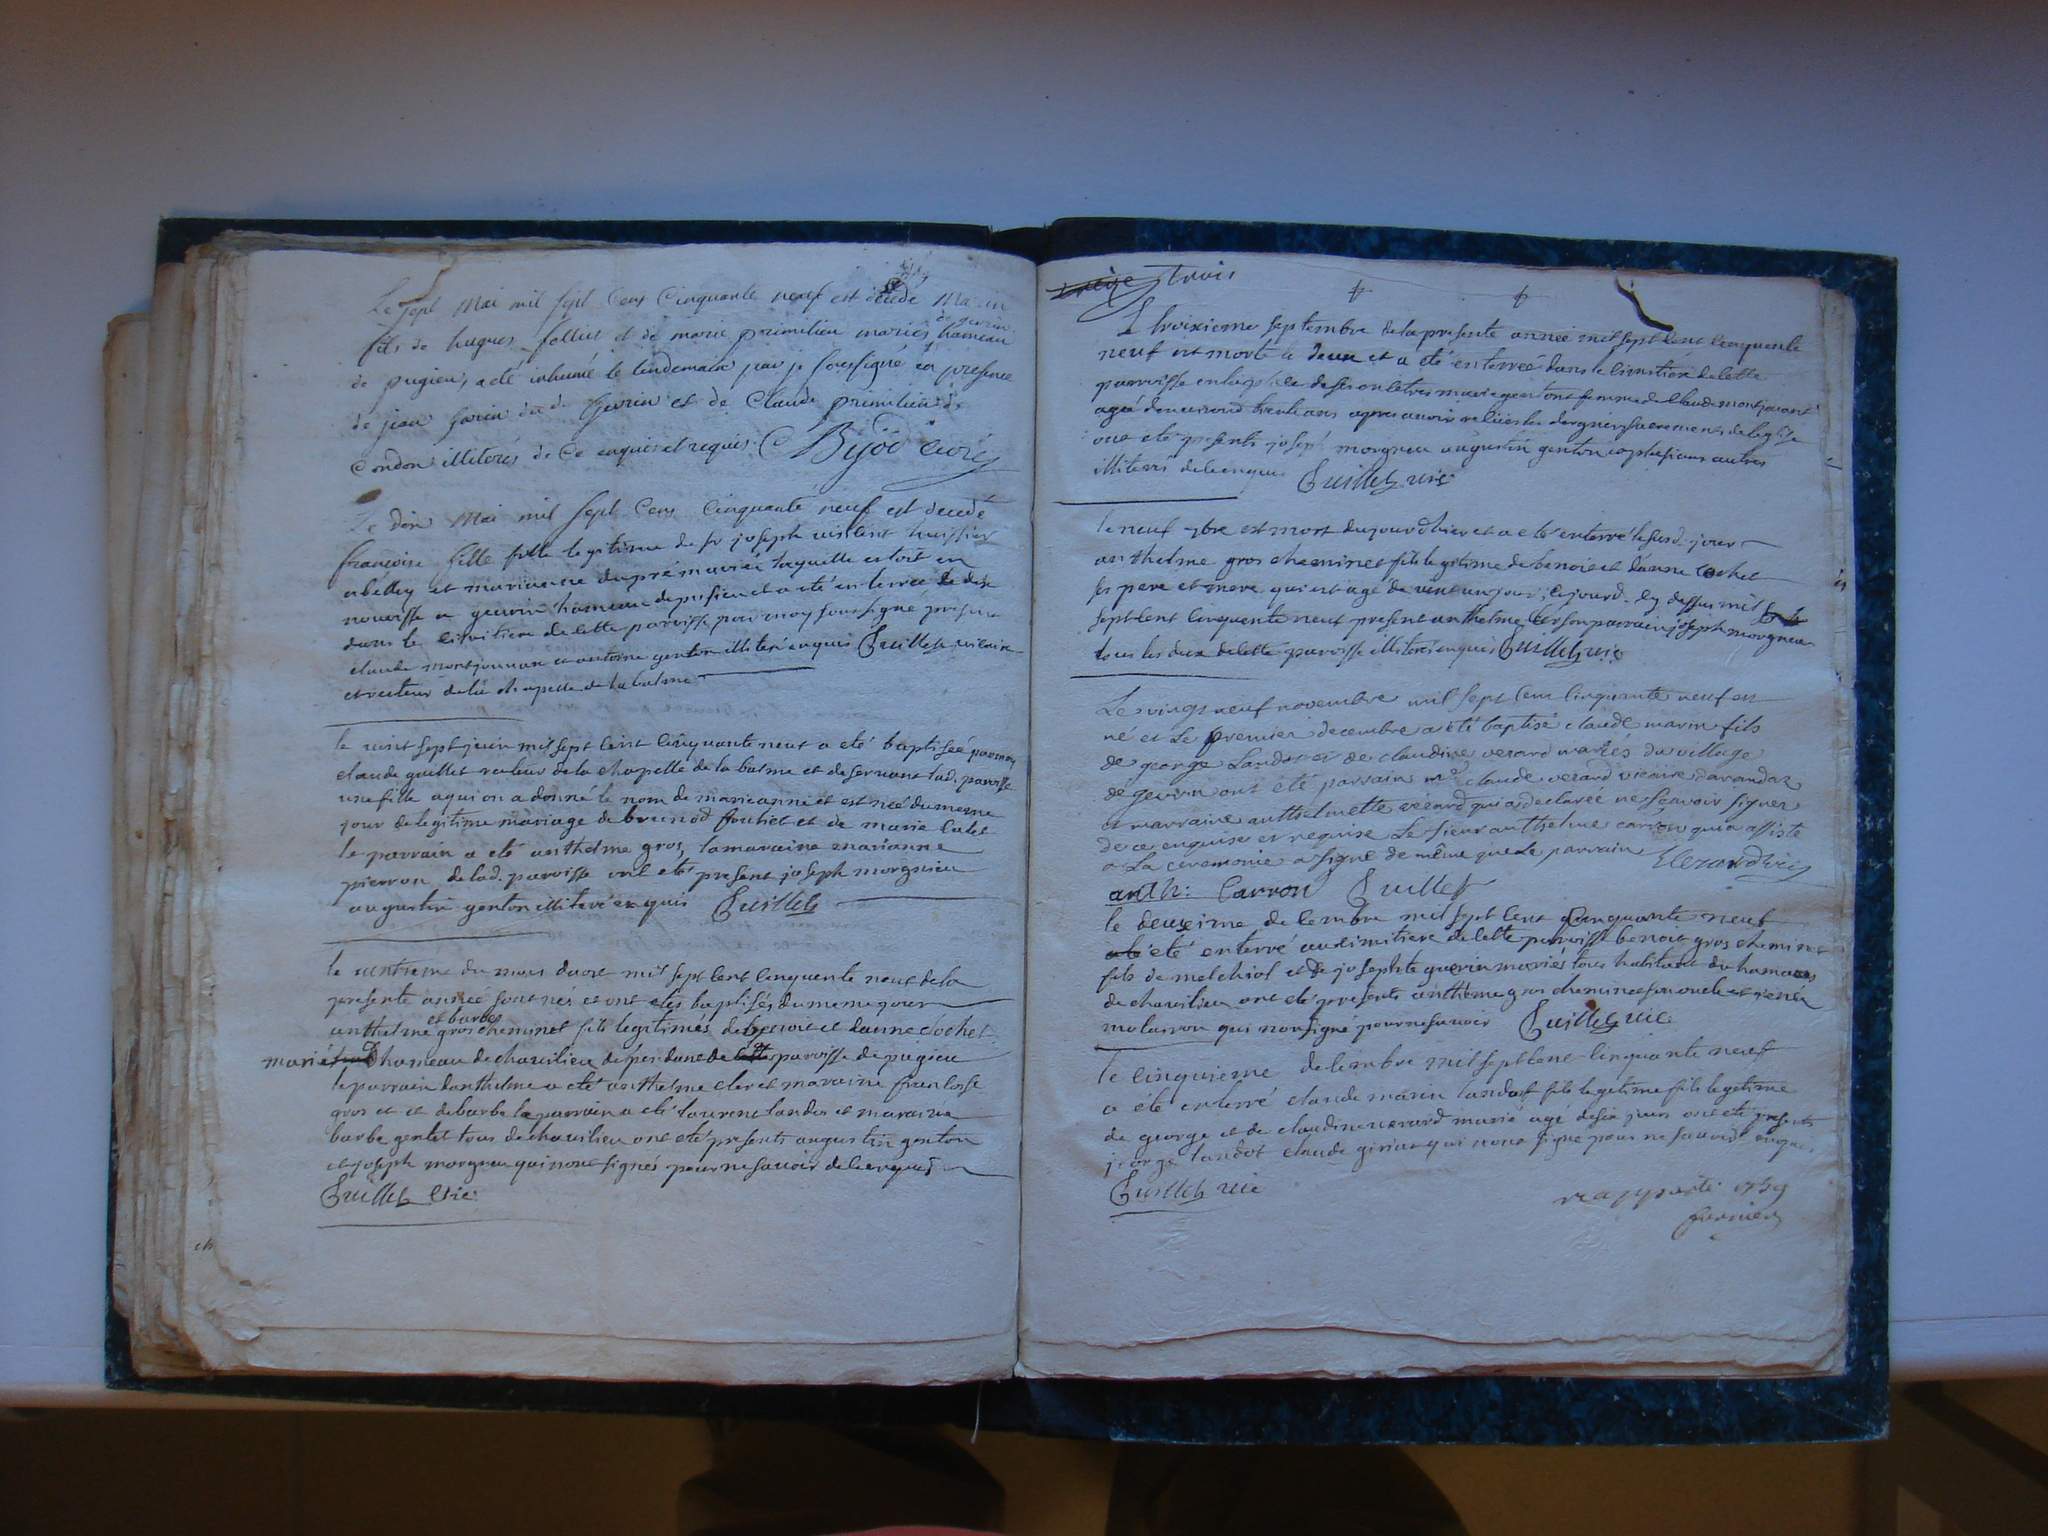 Le sept Mai mil sept cens cinquante neuf est décédé Marin
fils de hugues folliet et de marie primilieu mariés, hameau
de gevrin
de pugieu, a cté inhumé le lendemain par je soussigné en presence
de jean gorin du de Gevrin et de Claude primilieu de
Condon illiterés de ce enquis et requis. Bijod curé
Le dix Mai mil sept cens cinquante neuf est decedé
françoise fille legitime de sr joseph huissier
a belley et marianne dupré mariés laquelle estoit en
nourisse a gevrin hameau de pusieu et a eté enterrée le dix
dans le cimitiere de cette paroisse par moy soussigné present
claude montjouvan et antoine genton illiteré enquis Guillet vicaire
et recteur de la chapelle de la balme
le vint sept juin mil sept cent cinquante neuf a eté baptiseé par moy
claude guillet recteur de la chapelle de la balme et deservant lad. paroisse
une fille a qui on a donné le nom de marieanne et est neé du mesme
jour de legitime mariage de brunod et de marie
le parrain a eté anthelme gros, la maraine marianne
pierron de lad. paroisse ont eté present joseph morgnieu
augustin genton illiteré enquis Guillet
le du mois daost mil sept cent cinquente neuf de la
presente anneé sont nés et ont etés baptisés du meme jour
et barbe
anthelme gros cheminet fils legitimés de benoit et danne cochet
marié hameau de chavilieu dependant de cette paroisse de pugieu
le parrain danthelme a eté anthelme cler et maraine francoise
gros et et de barbe le parrain a eté laurent landos et maraine
barbe gentet tous de chavilieu ont eté presents augustin genton
et joseph morgnieu qui nont signés pour ne savoir de ce enquis
Guillet vic
treize trois
L troixieme septembre de la presente anneé mil sept cent cinquente
neuf est morte a deux et a eté enterreé dans le cimitiere de cette
paroisse femme de Claude montjouvant
ageé denviron trente ans apres avoir les dergniers sacrements de leglise
ont eté presents joseph morgnieu augustin genton et plusieurs autres
illiterés de ce enquis Guillet vic
le neuf 7bre est mort du jour dhier et a eté enterré le susd. jour
anthelme gros cheminet fils legitime de benoit et danne cochet
ses pere et mere qui est agé de vint un jour, le jour cy dessus mil
sept cent cinquente neuf present anthelme cler son parrain joseph morgnieu
tous les deux de cette paroisse illiteré enquis Guillet vic
Le vingt neuf novembre mil sept cent cinquante neuf est
né et le premier decembre a été baptisé claude marin fils
de george Landos et de claudine verard mariés du village
de gevrin ont été parrain mre claude verard vicaire darandas
et marraine anthelmette verard qui a declareé ne scavoir signer
de ce enquise et requise Le sieur anthelme carron qui a assisté
a la ceremonie a signé de même que le parrain Verard vic
anth: Carron Guillet
le deuxime decembre mil sept cent cinquante neuf
a eté enterré au cimitiere de cette paroisse benoit gros cheminet
fils de melchiol et de josephte guerin mariés tous habitant du hameau
de chavilieu ont eté presents anthelme gros cheminet son oncle et
molarron qui nont signé pour ne savoir Guillet vic
le cinquieme decembre mil sept cent cinquante neuf
a eté enterré claude marin landost fils legitime fils legitime
de george et de claudine verard marié agé de six jours ont eté presents
jeorge landot claude qui nont signé pour ne savoir enquis
Guillet vic